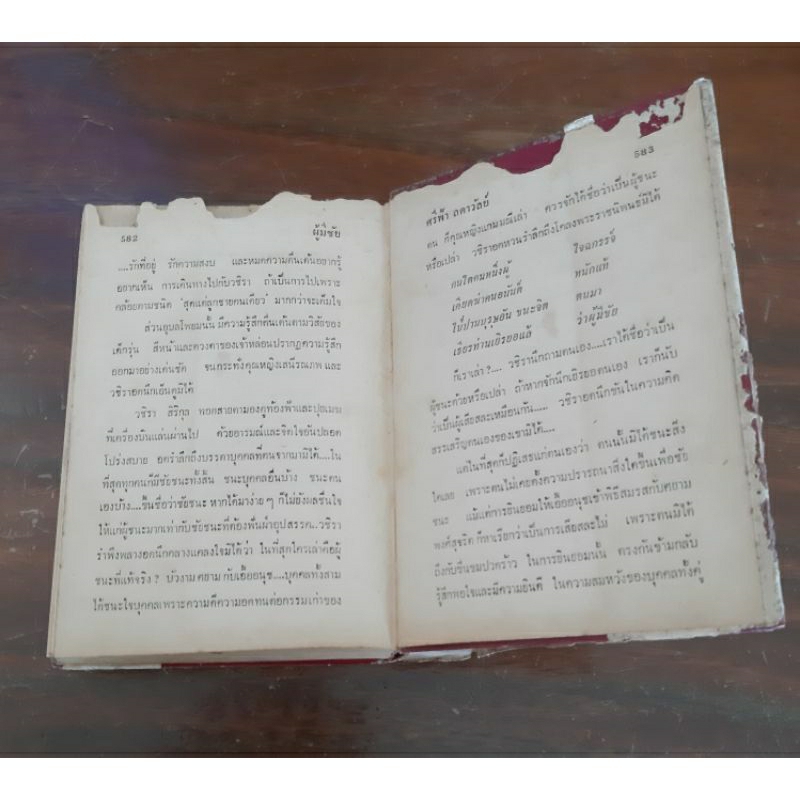 582 ผู้มีชัย
....รักที่อยู่ รักความสงบ และหมดความตื่นเต้นอยากรู้
อยากเห็น การเดินทางไปกับวชิรา ถ้าเป็นการไปเพราะ
คล้อยตามชนิด "สุดแต่ลูกชายคนเดียว" มากกว่าจะเต็มใจ
ส่วนอุบลโพยมนั้น มีความรู้สึกตื่นเต้นตามวิสัยของ
เด็กรุ่น สีหน้าและดวงตาของเจ้าหล่อนปรากฏความรู้สึก
ออกมาอย่างเด่นชัด จนกระทั่งคุณหญิงเสนีรณภพ และ
วชิราอดนึกเอ็นดูมิได้
วชิรา สิริกุล ทอดสายตามองดูท้องฟ้าและปุยเมฆ
ที่เครื่องบินแล่นผ่านไป ด้วยอารมณ์และจิตใจอันปลอด
โปร่งสบาย อดรำลึกถึงบรรดาบุคคลที่ตนจากมามิได้....ใน
ที่สุดทุกคนก็มีชัยชนะทั้งสิ้น ชนะบุคคลอื่นบ้าง ชนะตน
เองบ้าง....ขึ้นชื่อว่าชัยชนะ หากได้มาง่าย ๆ ก็ไม่ยังผลชื่นใจ
ให้แก่ผู้ชนะมากเท่ากับชัยชนะที่ต้องฟันฝ่าอุปสรรค..วชิรา
รำพึงพลางอดนึกกลางแคลงใจมิได้ว่า ในที่สุดใครเล่าคือผู้
ชนะที่แท้จริง? บัวงาม คยาม กับเอื้อยนุช....บุคคลทั้งสาม
ได้ชนะใจบุคคลเพราะความดีความอดทนต่อกรรมเก่าของ
583
ศรีฟ้า ลดาวัลย์
ตน ก็คุณหญิงแถมมณีเล่า ควรจักได้ชื่อว่าเป็นผู้ชนะ
หรือเปล่า วชิราอดหวนรำลึกถึงโคลงพระราชนิพนธ์มิได้
คนใดคนหนึ่งผู้ ใจฉกรรจ์
เคียดฆ่าคนอนันต์ หนักแท้
ไป่ปานบุรุษอัน ชนะจิต ตนนา
เธียรท่านเยิรยอแล้ ว่าผู้มีชัย
ก็เราเล่า?.... วชิรานึกถามตนเอง....เราได้ชื่อว่าเป็น
ผู้ชนะด้วยหรือเปล่า ถ้าหากจักนึกเยิรยอตนเอง เราก็นับ
ว่าเป็นผู้เสียสละเหมือนกัน..... วชิราอดนึกขันในความคิด
สรรเสริญตนเองของเขามิได้....
แต่ในที่สุดก็ปฏิเสธแก่ตนเองว่า ตนนั้นมิได้ชนะสิ่ง
ใดเลย เพราะตนไม่เคยตั้งความปรารถนาสิ่งใดขึ้นเพื่อชัย
ชนะ แม้แต่การยินยอมให้เอื้อยนุชเข้าพิธีสมรสกับคยาม
พงศ์สุจริต ก็หาเรียกว่าเป็นการเสียสละไม่ เพราะตนมิได้
ถึงกับขื่นขมปวดร้าว ในการยินยอมนั้น ตรงกันข้ามกลับ
รู้สึกพอใจและมีความยินดี ในความสมหวังของบุคคลทั้งคู่